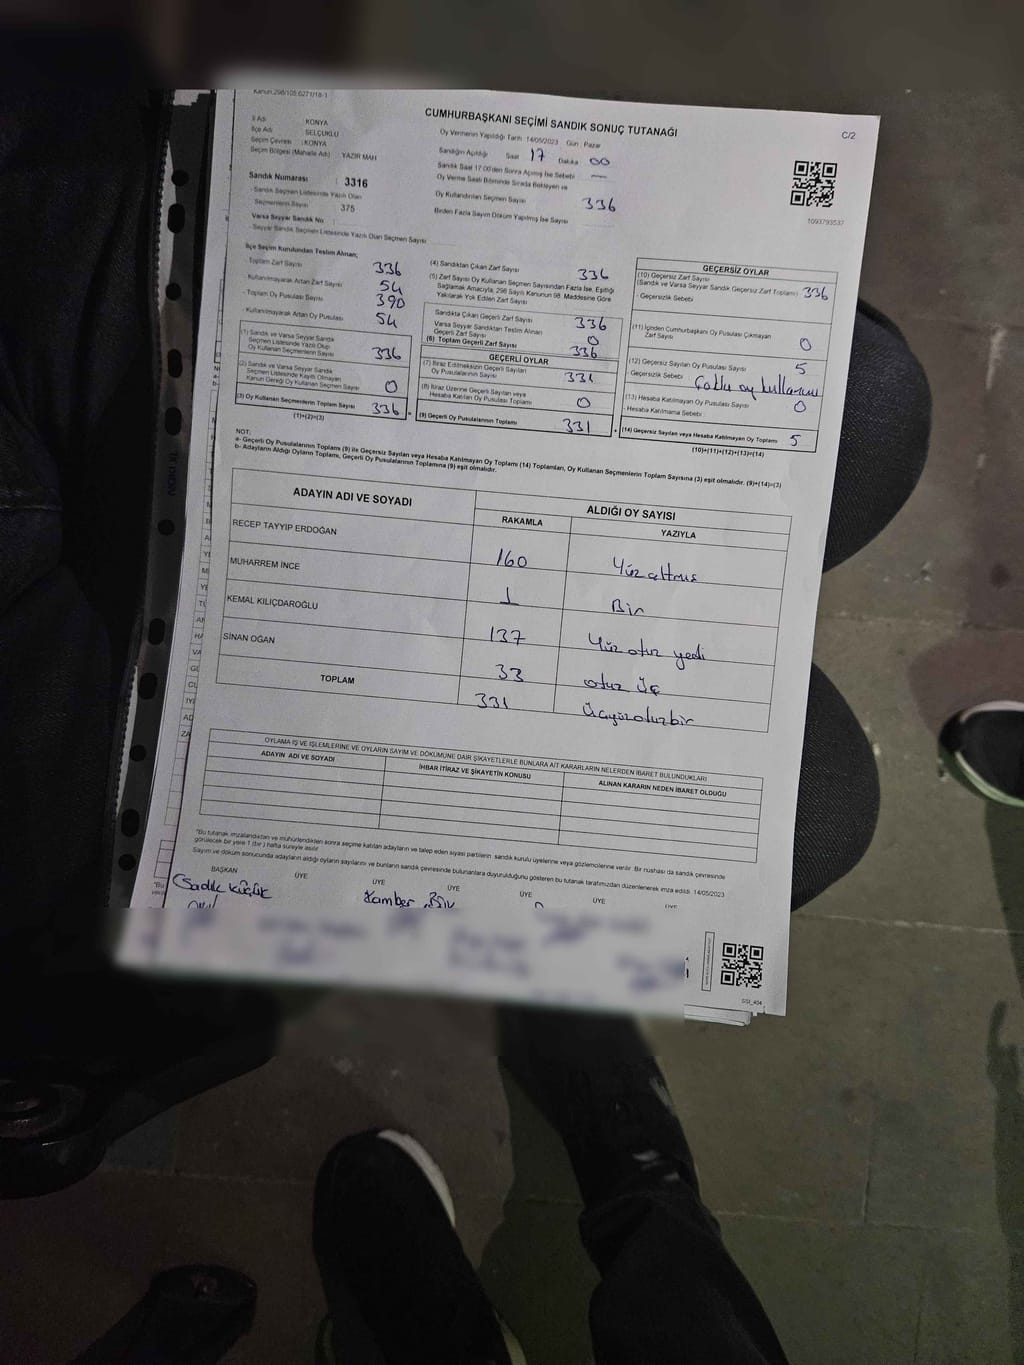 Kanun:298/105,6271/18-1
CUMHURBAŞKANI SEÇİMİ SANDIK SONUÇ TUTANAĞI
C/2
İl Adı : KONYA
İlçe Adı : SELÇUKLU
Seçim Çevresi : KONYA
Seçim Bölgesi (Mahalle Adı) : YAZIR MAH
Sandık Numarası : 3316
- Sandık Seçmen Listesinde Yazılı Olan
Seçmenlerin Sayısı : 375
Varsa Seyyar Sandık No :
- Seyyar Sandık Seçmen Listesinde Yazılı Olan Seçmen Sayısı
Oy Vermenin Yapıldığı Tarih 14/05/2023 Gün : Pazar
Sandığın Açıldığı Saat 17 Dakika 00
Sandık Saat 17:00'den Sonra Açılmış İse Sebebi —
Oy Verme Saati Bitiminde Sırada Bekleyen ve
Oy Kullandırılan Seçmen Sayısı 336
Birden Fazla Sayım Döküm Yapılmış İse Sayısı
1093793537
İlçe Seçim Kurulundan Teslim Alınan;
- Toplam Zarf Sayısı 336
- Kullanılmayarak Artan Zarf Sayısı 54
- Toplam Oy Pusulası Sayısı 390
- Kullanılmayarak Artan Oy Pusulası 54
(1) Sandık ve Varsa Seyyar Sandık
Seçmen Listesinde Yazılı Olup
Oy Kullanan Seçmenlerin Sayısı 336
(2) Sandık ve Varsa Seyyar Sandık
Seçmen Listesinde Kayıtlı Olmayan
Kanun Gereği Oy Kullanan Seçmen Sayısı 0
(3) Oy Kullanan Seçmenlerin Toplam Sayısı 336
(1)+(2)=(3)
(4) Sandıktan Çıkan Zarf Sayısı 336
(5) Zarf Sayısı Oy Kullanan Seçmen Sayısından Fazla İse, Eşitliği
Sağlamak Amacıyla, 298 Sayılı Kanunun 98. Maddesine Göre
Yakılarak Yok Edilen Zarf Sayısı
Sandıkta Çıkan Geçerli Zarf Sayısı 336
Varsa Seyyar Sandıktan Teslim Alınan
Geçerli Zarf Sayısı 0
(6) Toplam Geçerli Zarf Sayısı 336
GEÇERLİ OYLAR
(7) İtiraz Edilmeksizin Geçerli Sayılan
Oy Pusulalarının Sayısı 331
(8) İtiraz Üzerine Geçerli Sayılan veya
Hesaba Katılan Oy Pusulası Toplamı 0
(9) Geçerli Oy Pusulalarının Toplamı 331
GEÇERSİZ OYLAR
(10) Geçersiz Zarf Sayısı
(Sandık ve Varsa Seyyar Sandık Geçersiz Zarf Toplamı) 336
- Geçersizlik Sebebi
(11) İçinden Cumhurbaşkanı Oy Pusulası Çıkmayan
Zarf Sayısı 0
(12) Geçersiz Sayılan Oy Pusulası Sayısı 5
- Geçersizlik Sebebi : Çoklu oy kullanımı
(13) Hesaba Katılmayan Oy Pusulası Sayısı 0
- Hesaba Katılmama Sebebi :
(14) Geçersiz Sayılan veya Hesaba Katılmayan Oy Toplamı 5
(10)+(11)+(12)+(13)=(14)
NOT:
a- Geçerli Oy Pusulalarının Toplamı (9) ile Geçersiz Sayılan veya Hesaba Katılmayan Oy Toplamı (14) Toplamları, Oy Kullanan Seçmenlerin Toplam Sayısına (3) eşit olmalıdır. (9)+(14)=(3)
b- Adayların Aldığı Oyların Toplamı, Geçerli Oy Pusulalarının Toplamına (9) eşit olmalıdır.
ADAYIN ADI VE SOYADI
ALDIĞI OY SAYISI
RAKAMLA YAZIYLA
RECEP TAYYIP ERDOĞAN 160 Yüz altmış
MUHARREM İNCE 1 Bir
KEMAL KILIÇDAROĞLU 137 Yüz otuz yedi
SİNAN OĞAN 33 otuz üç
TOPLAM 331 Üçyüzotuzbir
OYLAMA İŞ VE İŞLEMLERİNE VE OYLARIN SAYIM VE DÖKÜMÜNE DAİR ŞİKAYETLERLE BUNLARA AİT KARARLARIN NELERDEN İBARET BULUNDUKLARI
ADAYIN ADI VE SOYADI İHBAR İTİRAZ VE ŞİKAYETİN KONUSU ALINAN KARARIN NEDEN İBARET OLDUĞU
"Bu tutanak imzalandıktan ve mühürlendikten sonra seçime katılan adayların ve talep eden siyasi partilerin sandık kurulu üyelerine veya gözlemcilerine verilir. Bir nüshası da sandık çevresinde
görülecek bir yere 1 (bir) hafta süreyle asılır
Sayım ve döküm sonucunda adayların aldığı oyların sayılarını ve bunların sandık çevresinde bulunanlara duyurulduğunu gösteren bu tutanak tarafımızdan düzenlenerek imza edildi. 14/05/2023
BAŞKAN ÜYE ÜYE ÜYE ÜYE ÜYE ÜYE
Sadık Küçük Kamber
SSI_404